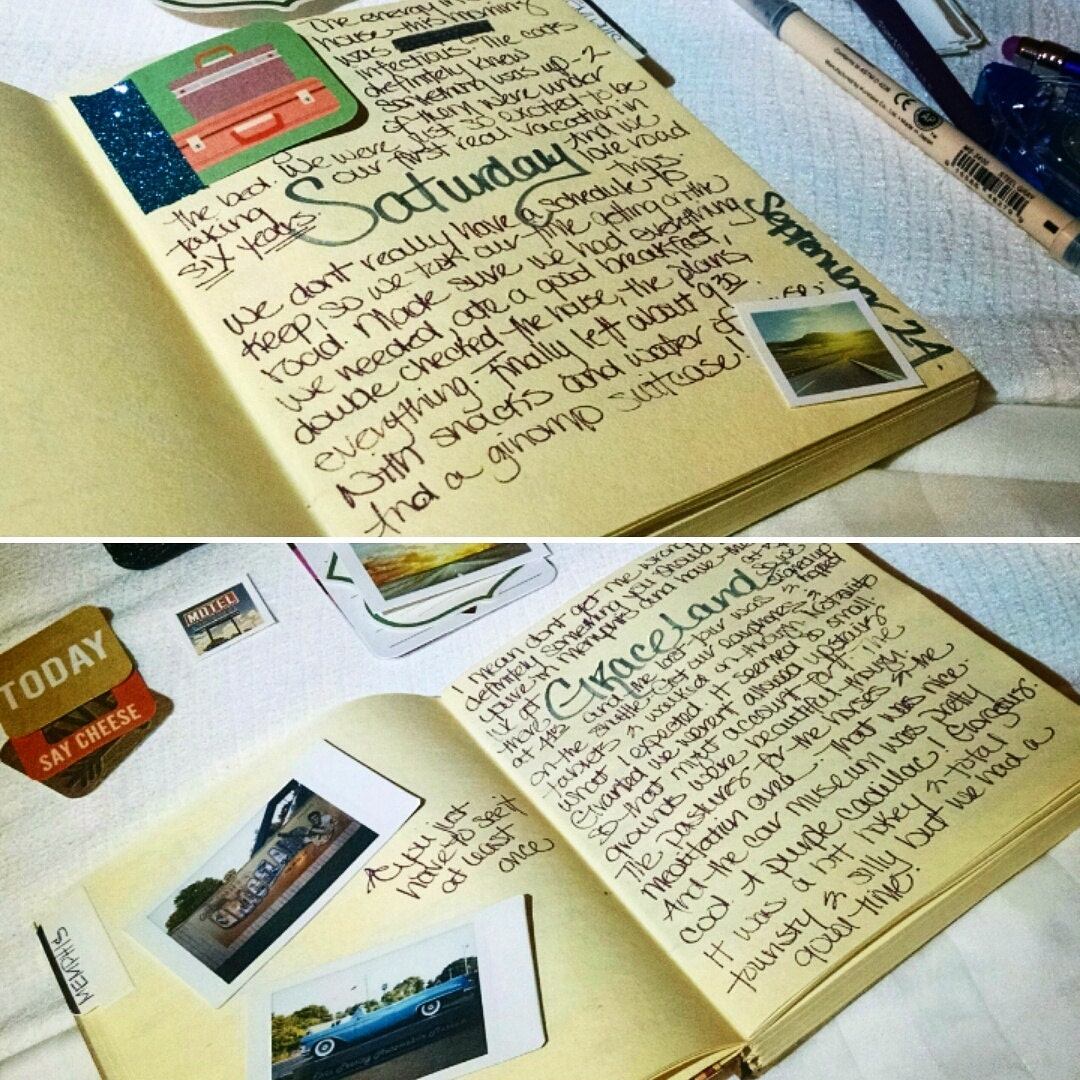 The energy in
house this morning
was
infectious. The cats
definitely knew
something was up - 2
of them were under
the bed. We were just so excited to be
taking our first real vacation in
six years. And we
love road
trips.
Saturday
September 24
We don't really have a schedule to
keep, so we took our time getting on the
road. Made sure we had everything
we needed, ate a good breakfast,
double checked the house, the plans,
everything. Finally left about 9:30
with snacks and water
And a ginormo suitcase!
I mean don't get me wrong
definitely something you should
you're in Memphis and have
Graceland
MOTEL
TODAY
SAY CHEESE
MEMPHIS
As you just
have to see it
at least
once
the last tour was
at 4
on the shuttle. Got our earphones &
tablets & walked on through. Not quite
what I expected. It seemed so small.
Granted we weren't allowed upstairs
so that might account for it. The
grounds were beautiful though.
The pastures for the horses & the
meditation area - that was nice.
And the car museum was pretty
cool. A purple cadillac! Gorgeous.
It was a bit hokey & total
touristy & silly but we had a
good time!